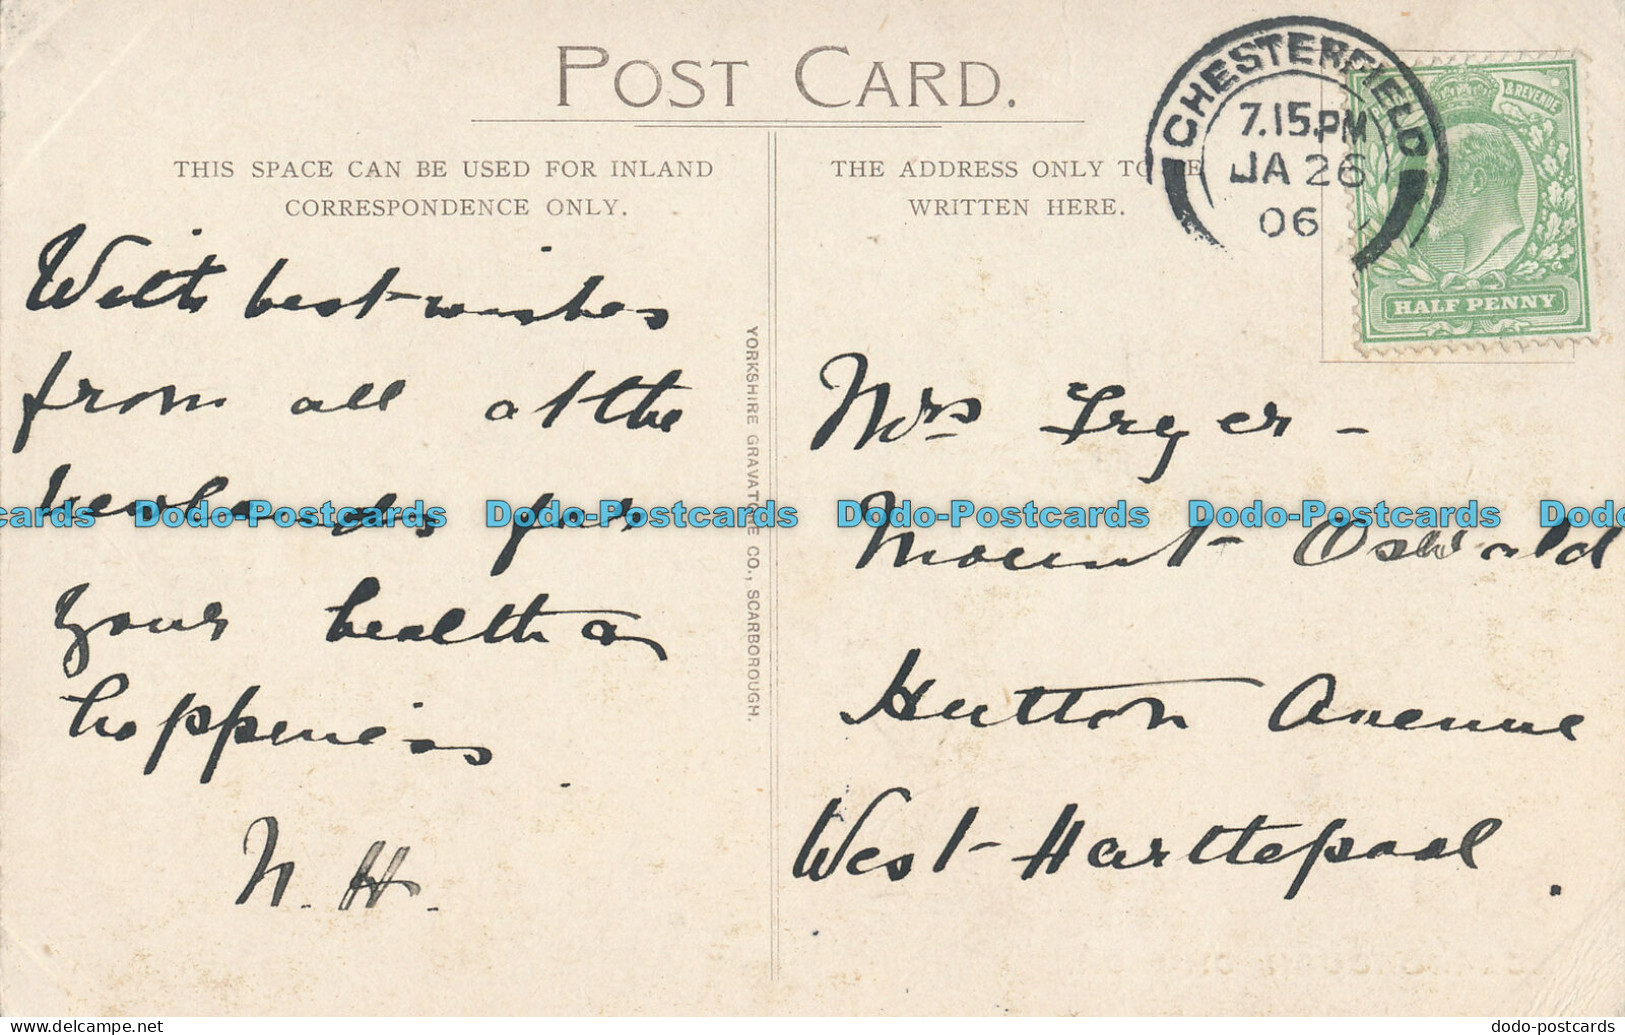 POST CARD.
THIS SPACE CAN BE USED FOR INLAND
CORRESPONDENCE ONLY.
THE ADDRESS ONLY TO BE
WRITTEN HERE.
CHESTERFIELD
7.15.PM
JA 26
06
& REVENUE
HALF PENNY
With best wishes
from all at the
Newlands for
your health &
happiness.
N. H.
YORKSHIRE GRAVATURE CO., SCARBOROUGH.
Mrs Fryer -
Mount Oswald
Hutton Avenue
West Hartlepool.
cards Dodo-Postcards Dodo-Postcards Dodo-Postcards Dodo-Postcards Dodo
dodo-postcards.delcampe.net
dodo-postcards